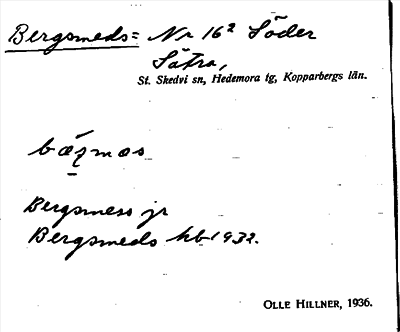 Bergsmeds= Nr 16² Söder
Sätra,
St. Skedvi sn, Hedemora tg, Kopparbergs län.
bæzmas
Bergsmess jr
Bergsmeds hb 1932.
OLLE HILLNER, 1936.